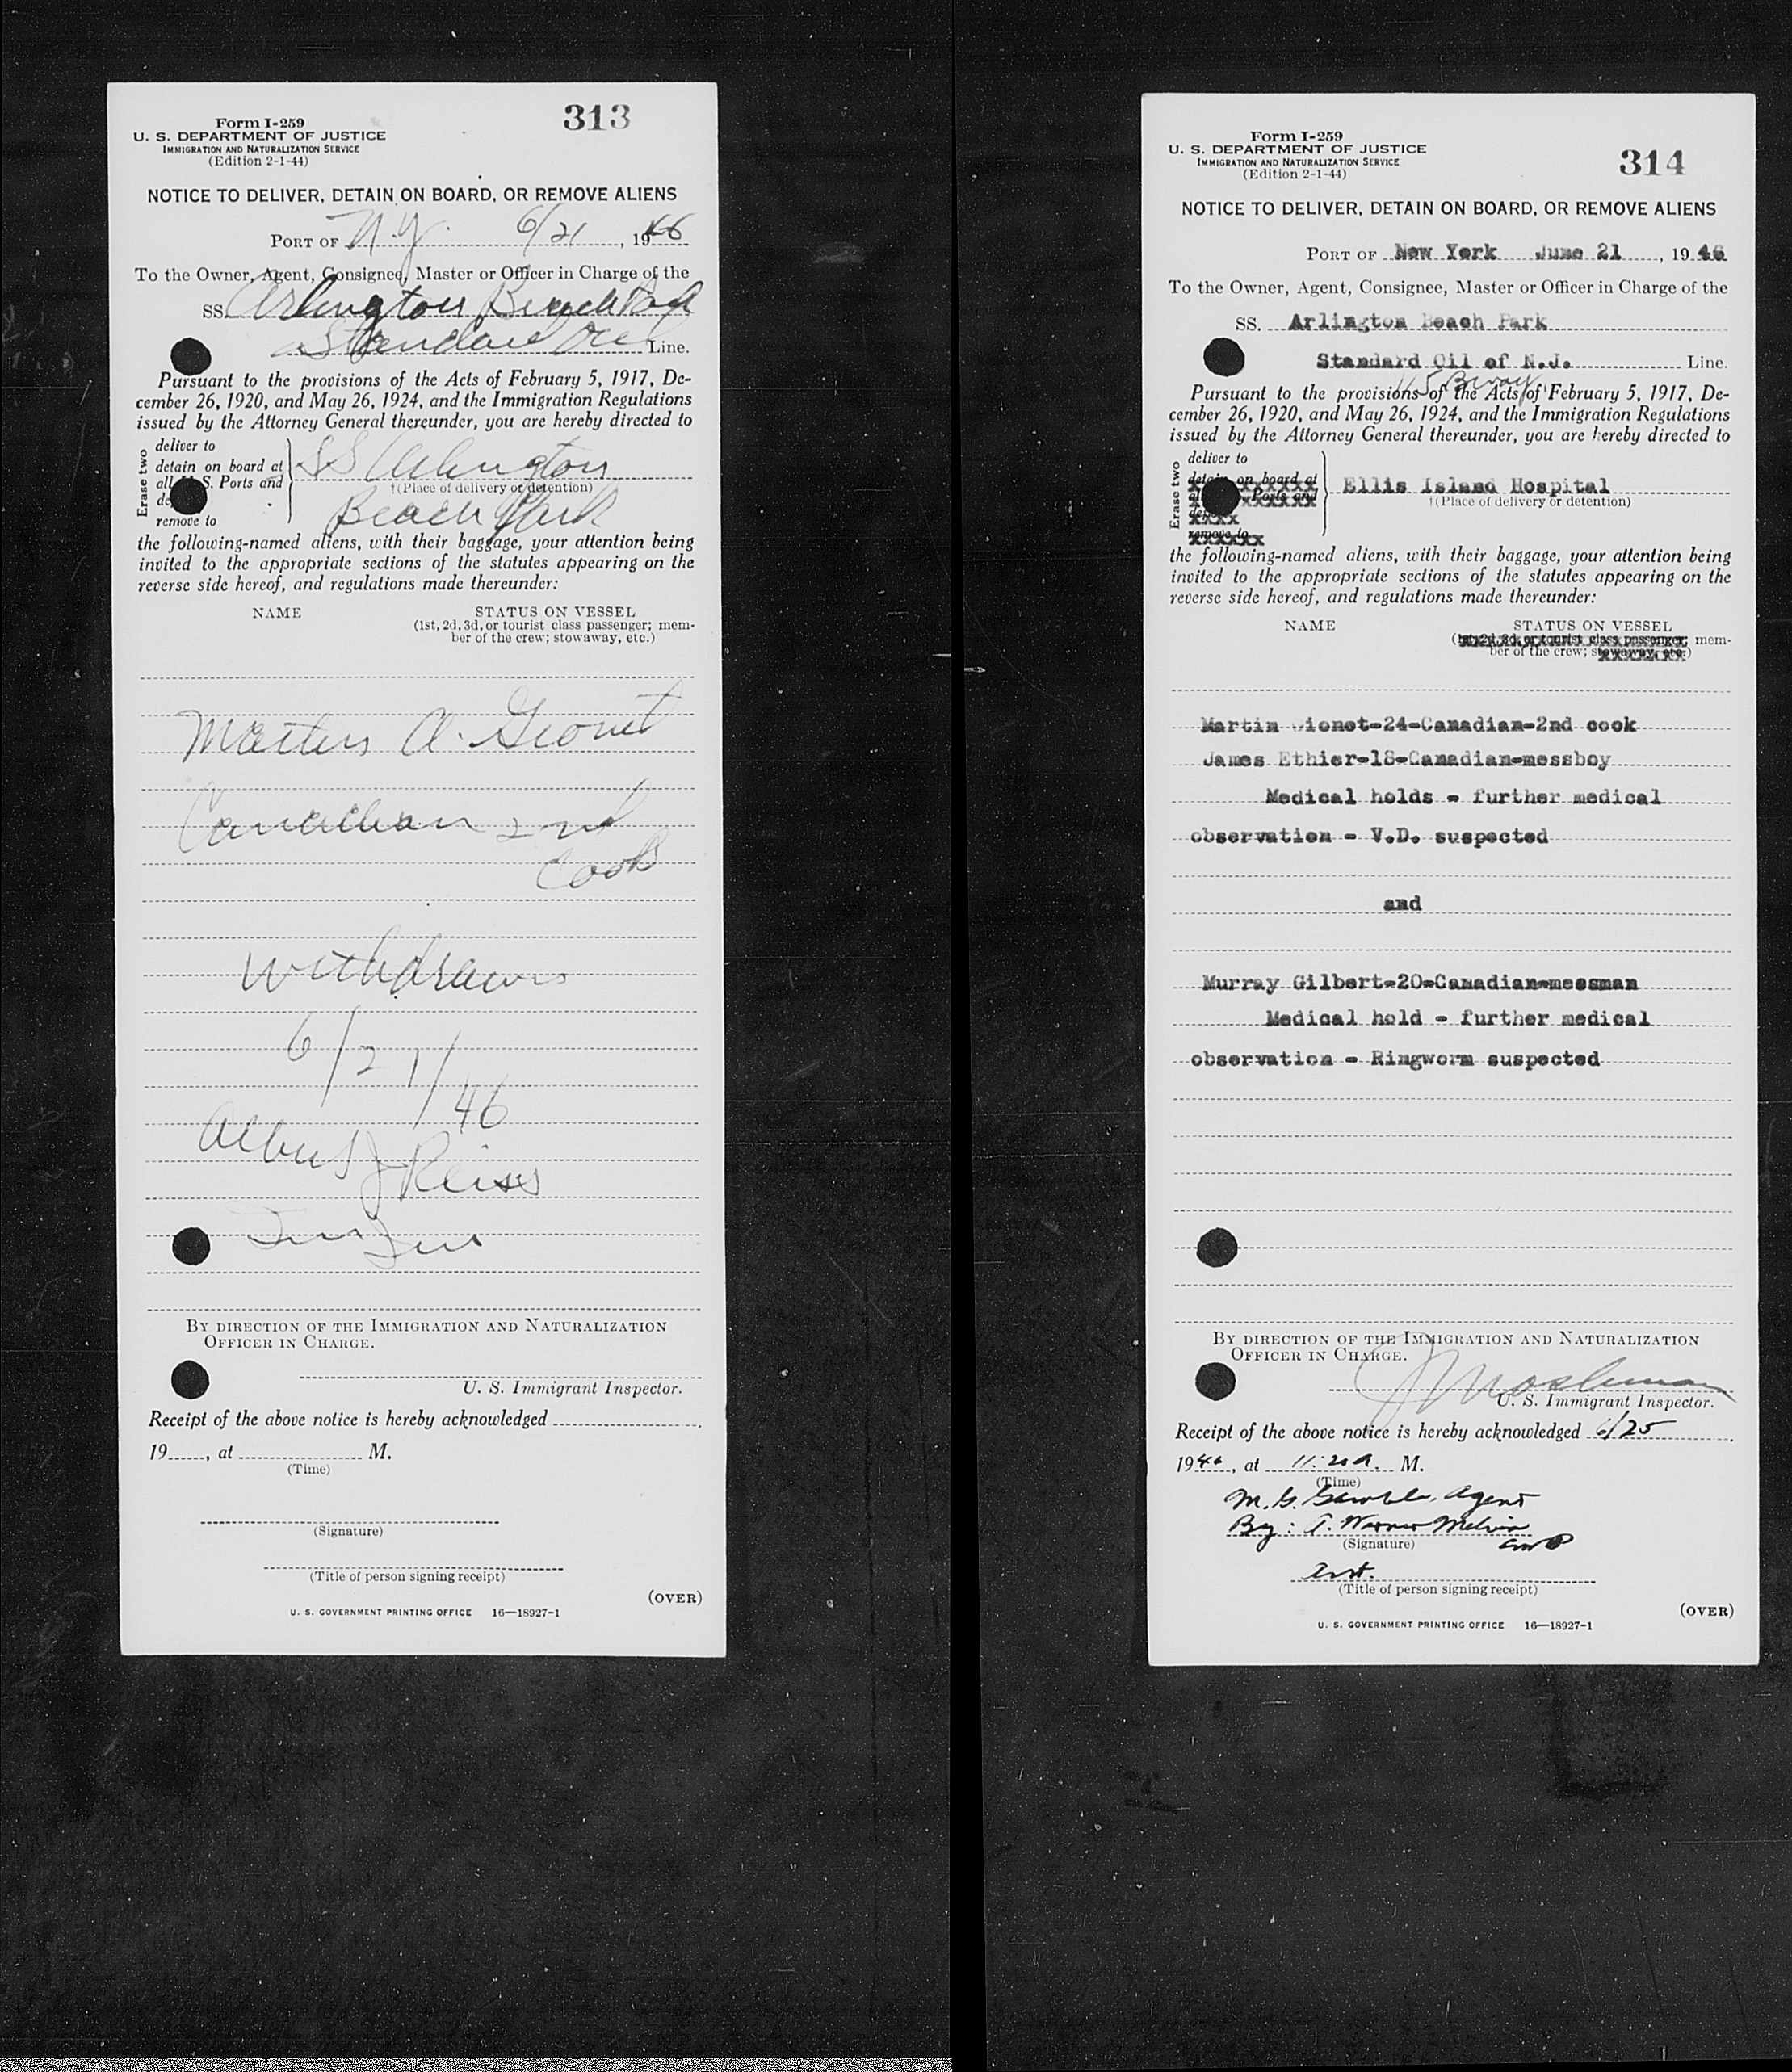 313
Form I-259
U. S. DEPARTMENT OF JUSTICE
IMMIGRATION AND NATURALIZATION SERVICE
(Edition 2-1-44)
NOTICE TO DELIVER, DETAIN ON BOARD, OR REMOVE ALIENS
PORT OF N.Y. 6/21, 1946
To the Owner, Agent, Consignee, Master or Officer in Charge of the
SS. Arlington Beach Park
Standard Oil Line.
Pursuant to the provisions of the Acts of February 5, 1917, De-
cember 26, 1920, and May 26, 1924, and the Immigration Regulations
issued by the Attorney General thereunder, you are hereby directed to
Erase two
deliver to
detain on board at
all S. Ports and
remove to
SS Arlington
†(Place of delivery or detention)
Beach Park
the following-named aliens, with their baggage, your attention being
invited to the appropriate sections of the statutes appearing on the
reverse side hereof, and regulations made thereunder:
NAME STATUS ON VESSEL
(1st, 2d, 3d, or tourist class passenger; mem-
ber of the crew; stowaway, etc.)
Martin A. Gionet
Canadian 2nd
Cook
Withdrawn
6/21/46
Albert J Reiss
BY DIRECTION OF THE IMMIGRATION AND NATURALIZATION
OFFICER IN CHARGE.
U. S. Immigrant Inspector.
Receipt of the above notice is hereby acknowledged
19, at M.
(Time)
(Signature)
(Title of person signing receipt)
(OVER)
U. S. GOVERNMENT PRINTING OFFICE 16—18927-1
Form I-259
U. S. DEPARTMENT OF JUSTICE
IMMIGRATION AND NATURALIZATION SERVICE
(Edition 2-1-44)
314
NOTICE TO DELIVER, DETAIN ON BOARD, OR REMOVE ALIENS
PORT OF New York June 21, 1946
To the Owner, Agent, Consignee, Master or Officer in Charge of the
SS. Arlington Beach Park
Standard Oil of N.J. Line.
115 Bway
Pursuant to the provisions of the Acts of February 5, 1917, De-
cember 26, 1920, and May 26, 1924, and the Immigration Regulations
issued by the Attorney General thereunder, you are hereby directed to
Erase two
deliver to
detain on board at
Ports and
remove to
Ellis Island Hospital
†(Place of delivery or detention)
the following-named aliens, with their baggage, your attention being
invited to the appropriate sections of the statutes appearing on the
reverse side hereof, and regulations made thereunder:
NAME STATUS ON VESSEL
(1st, 2d, 3d, or tourist class passenger; mem-
ber of the crew; stowaway, etc.)
Martin Gionet-24-Canadian-2nd cook
James Ethier-18-Canadian-messboy
Medical holds - further medical
observation - V.D. suspected
and
Murray Gilbert-20-Canadian-messman
Medical hold - further medical
observation - Ringworm suspected
BY DIRECTION OF THE IMMIGRATION AND NATURALIZATION
OFFICER IN CHARGE.
U. S. Immigrant Inspector.
Receipt of the above notice is hereby acknowledged 6/25
1946, at 11:20 A. M.
(Time)
M. G. Gamble, Agent
By: A. Warner
(Signature)
(Title of person signing receipt)
(OVER)
U. S. GOVERNMENT PRINTING OFFICE 16—18927-1